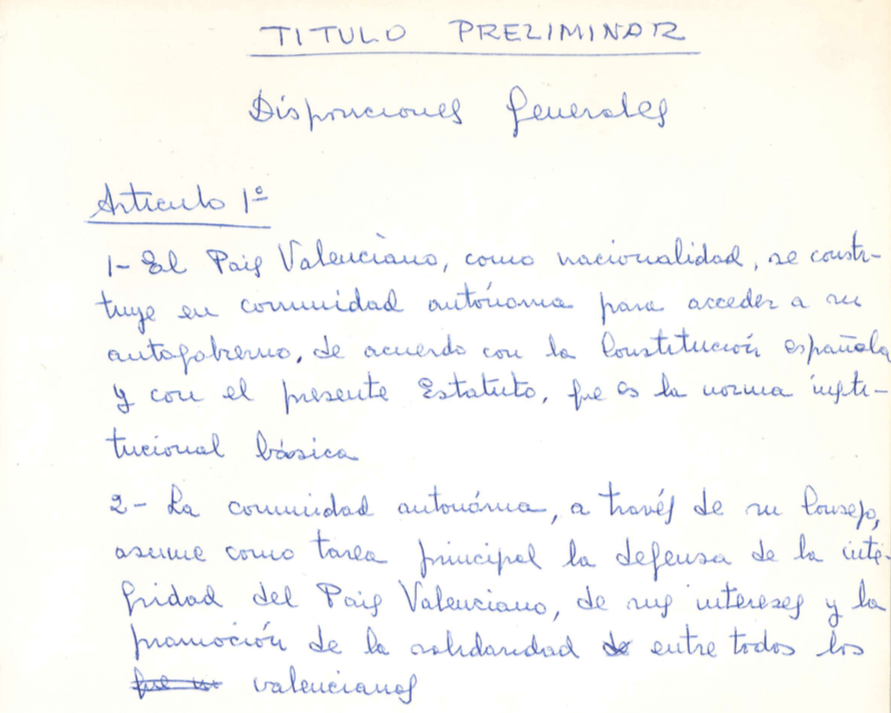 TITULO PRELIMINAR
Disposiciones Generales
Articulo 1º
1- El Pais Valenciano, como nacionalidad, se consti-
tuye en comunidad autónoma para acceder a su
autogobierno, de acuerdo con la Constitución española
y con el presente Estatuto, que es la norma insti-
tucional básica
2- La comunidad autonóma, a través de su Consejo,
asume como tarea principal la defensa de la inte-
gridad del Pais Valenciano, de sus intereses y la
promoción de la solidaridad de entre todos los
valencianos